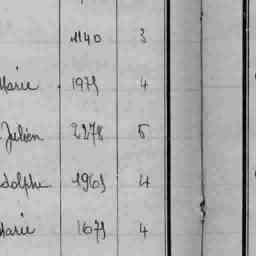 1140 3
Marie 1975 4
Julien 2278 5
dolphe 1965 4
Marie 1675 4